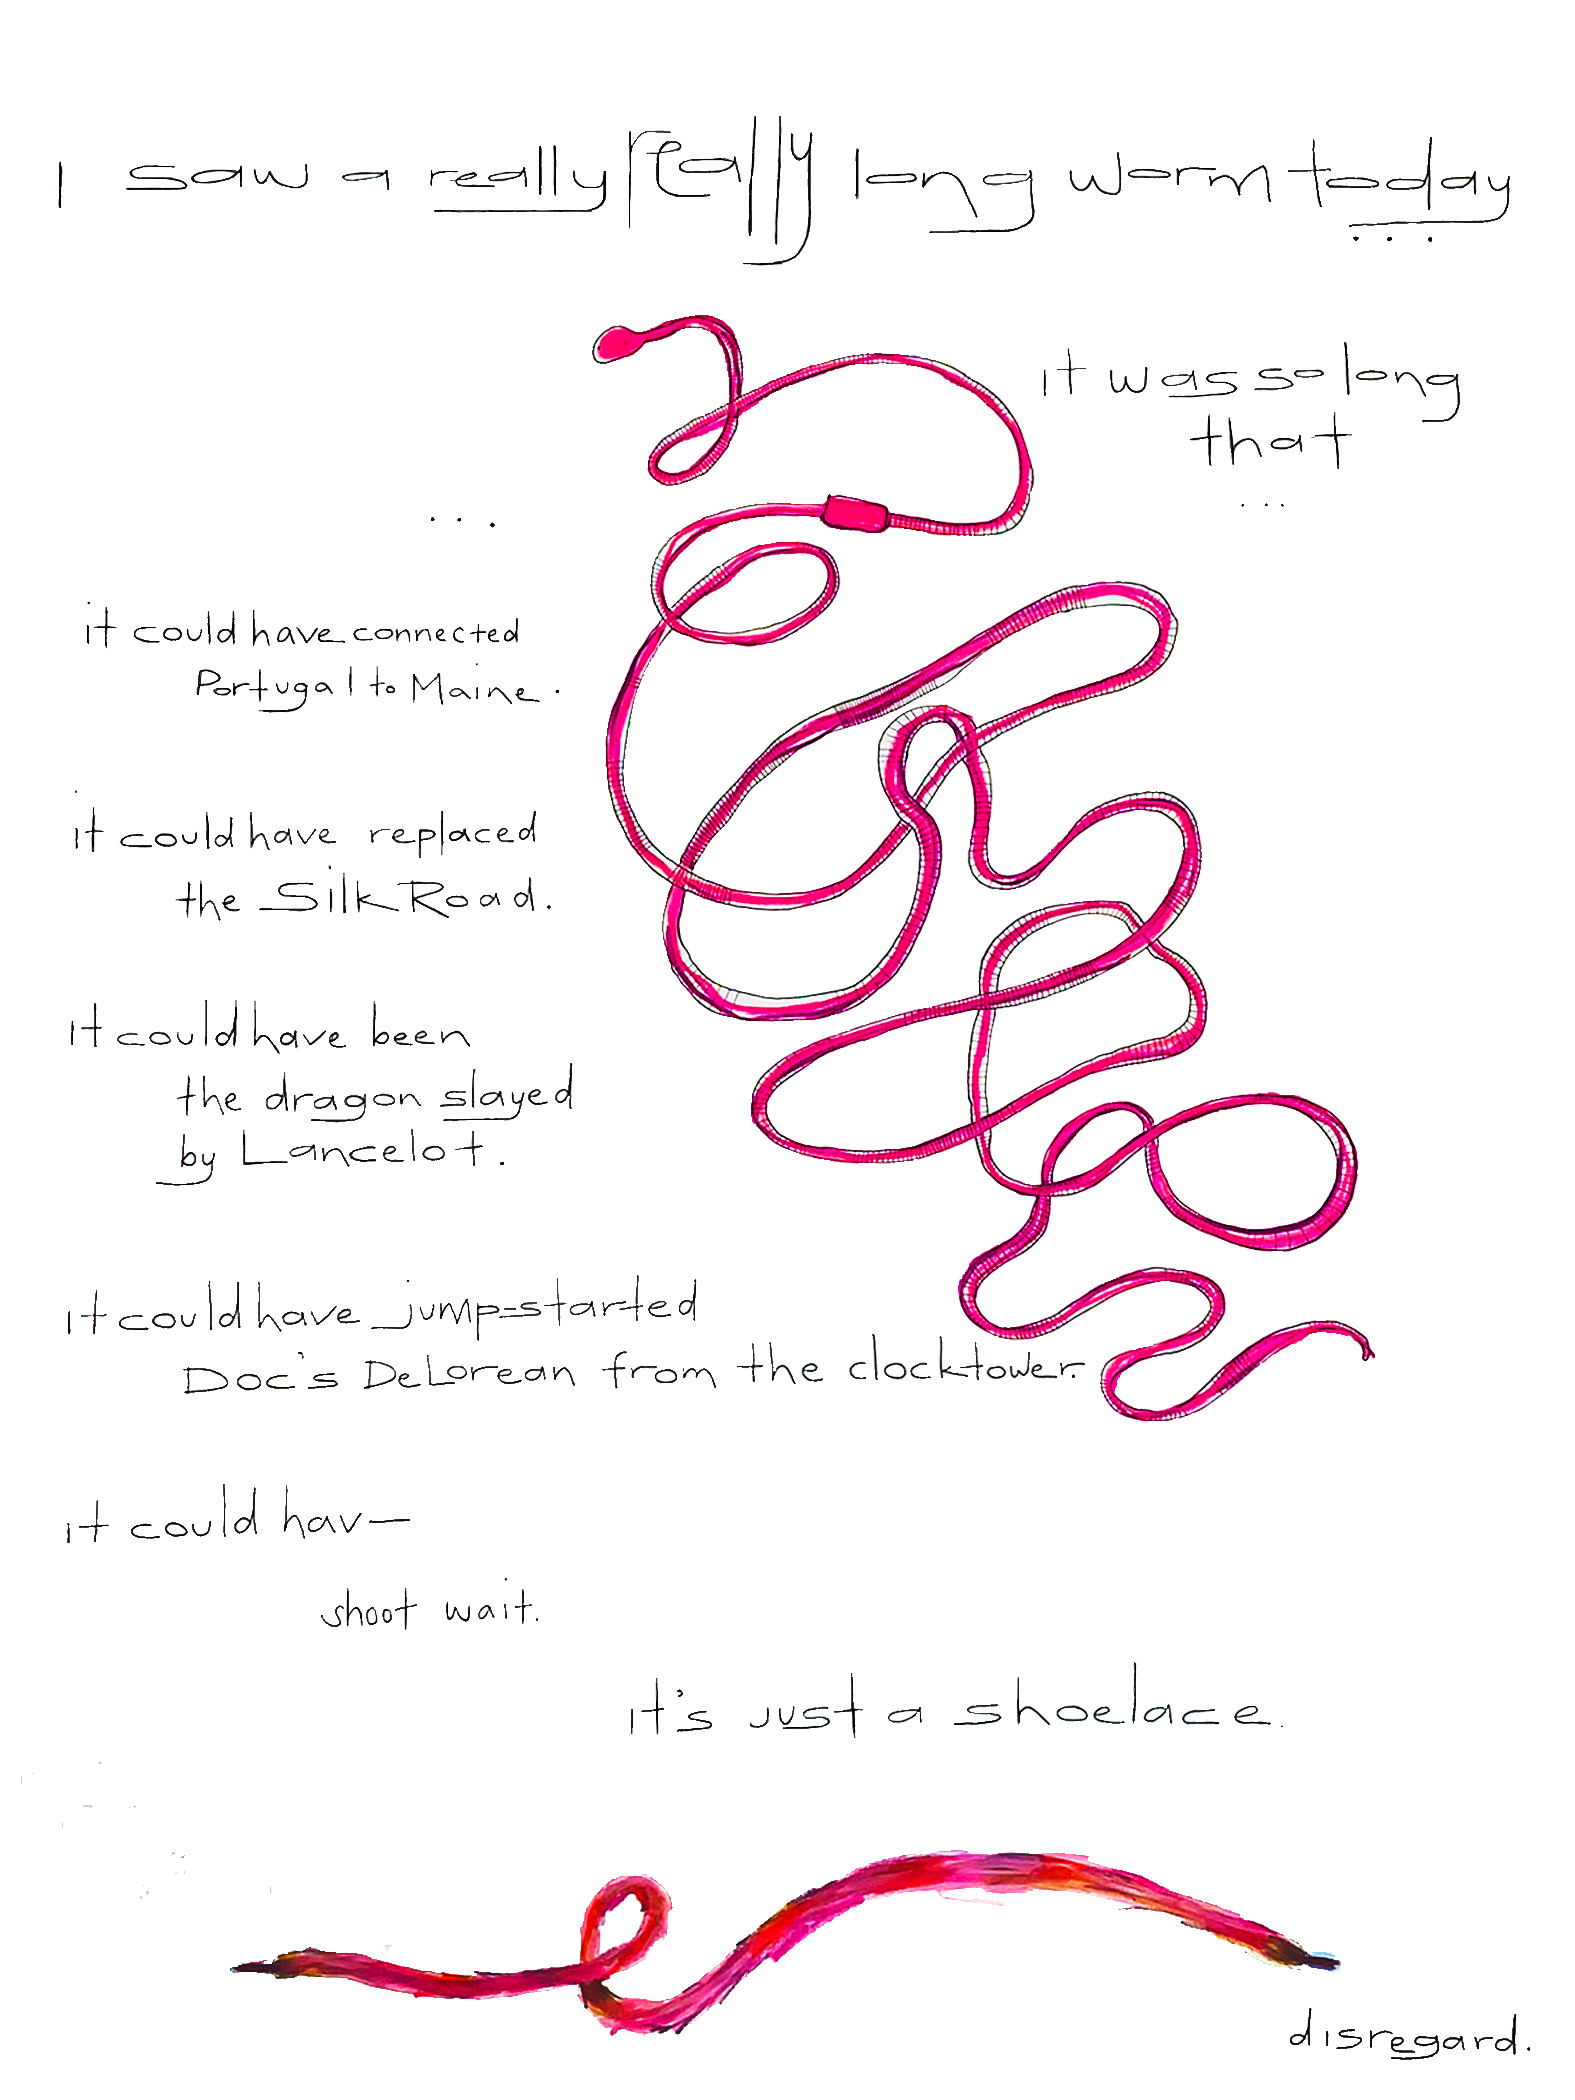 I saw a really really long worm today
...
it was so long
that
...
...
it could have connected
Portugal to Maine.
it could have replaced
the Silk Road.
it could have been
the dragon slayed
by Lancelot.
it could have jump-started
Doc's DeLorean from the clocktower.
it could hav—
shoot wait.
it's just a shoelace.
disregard.